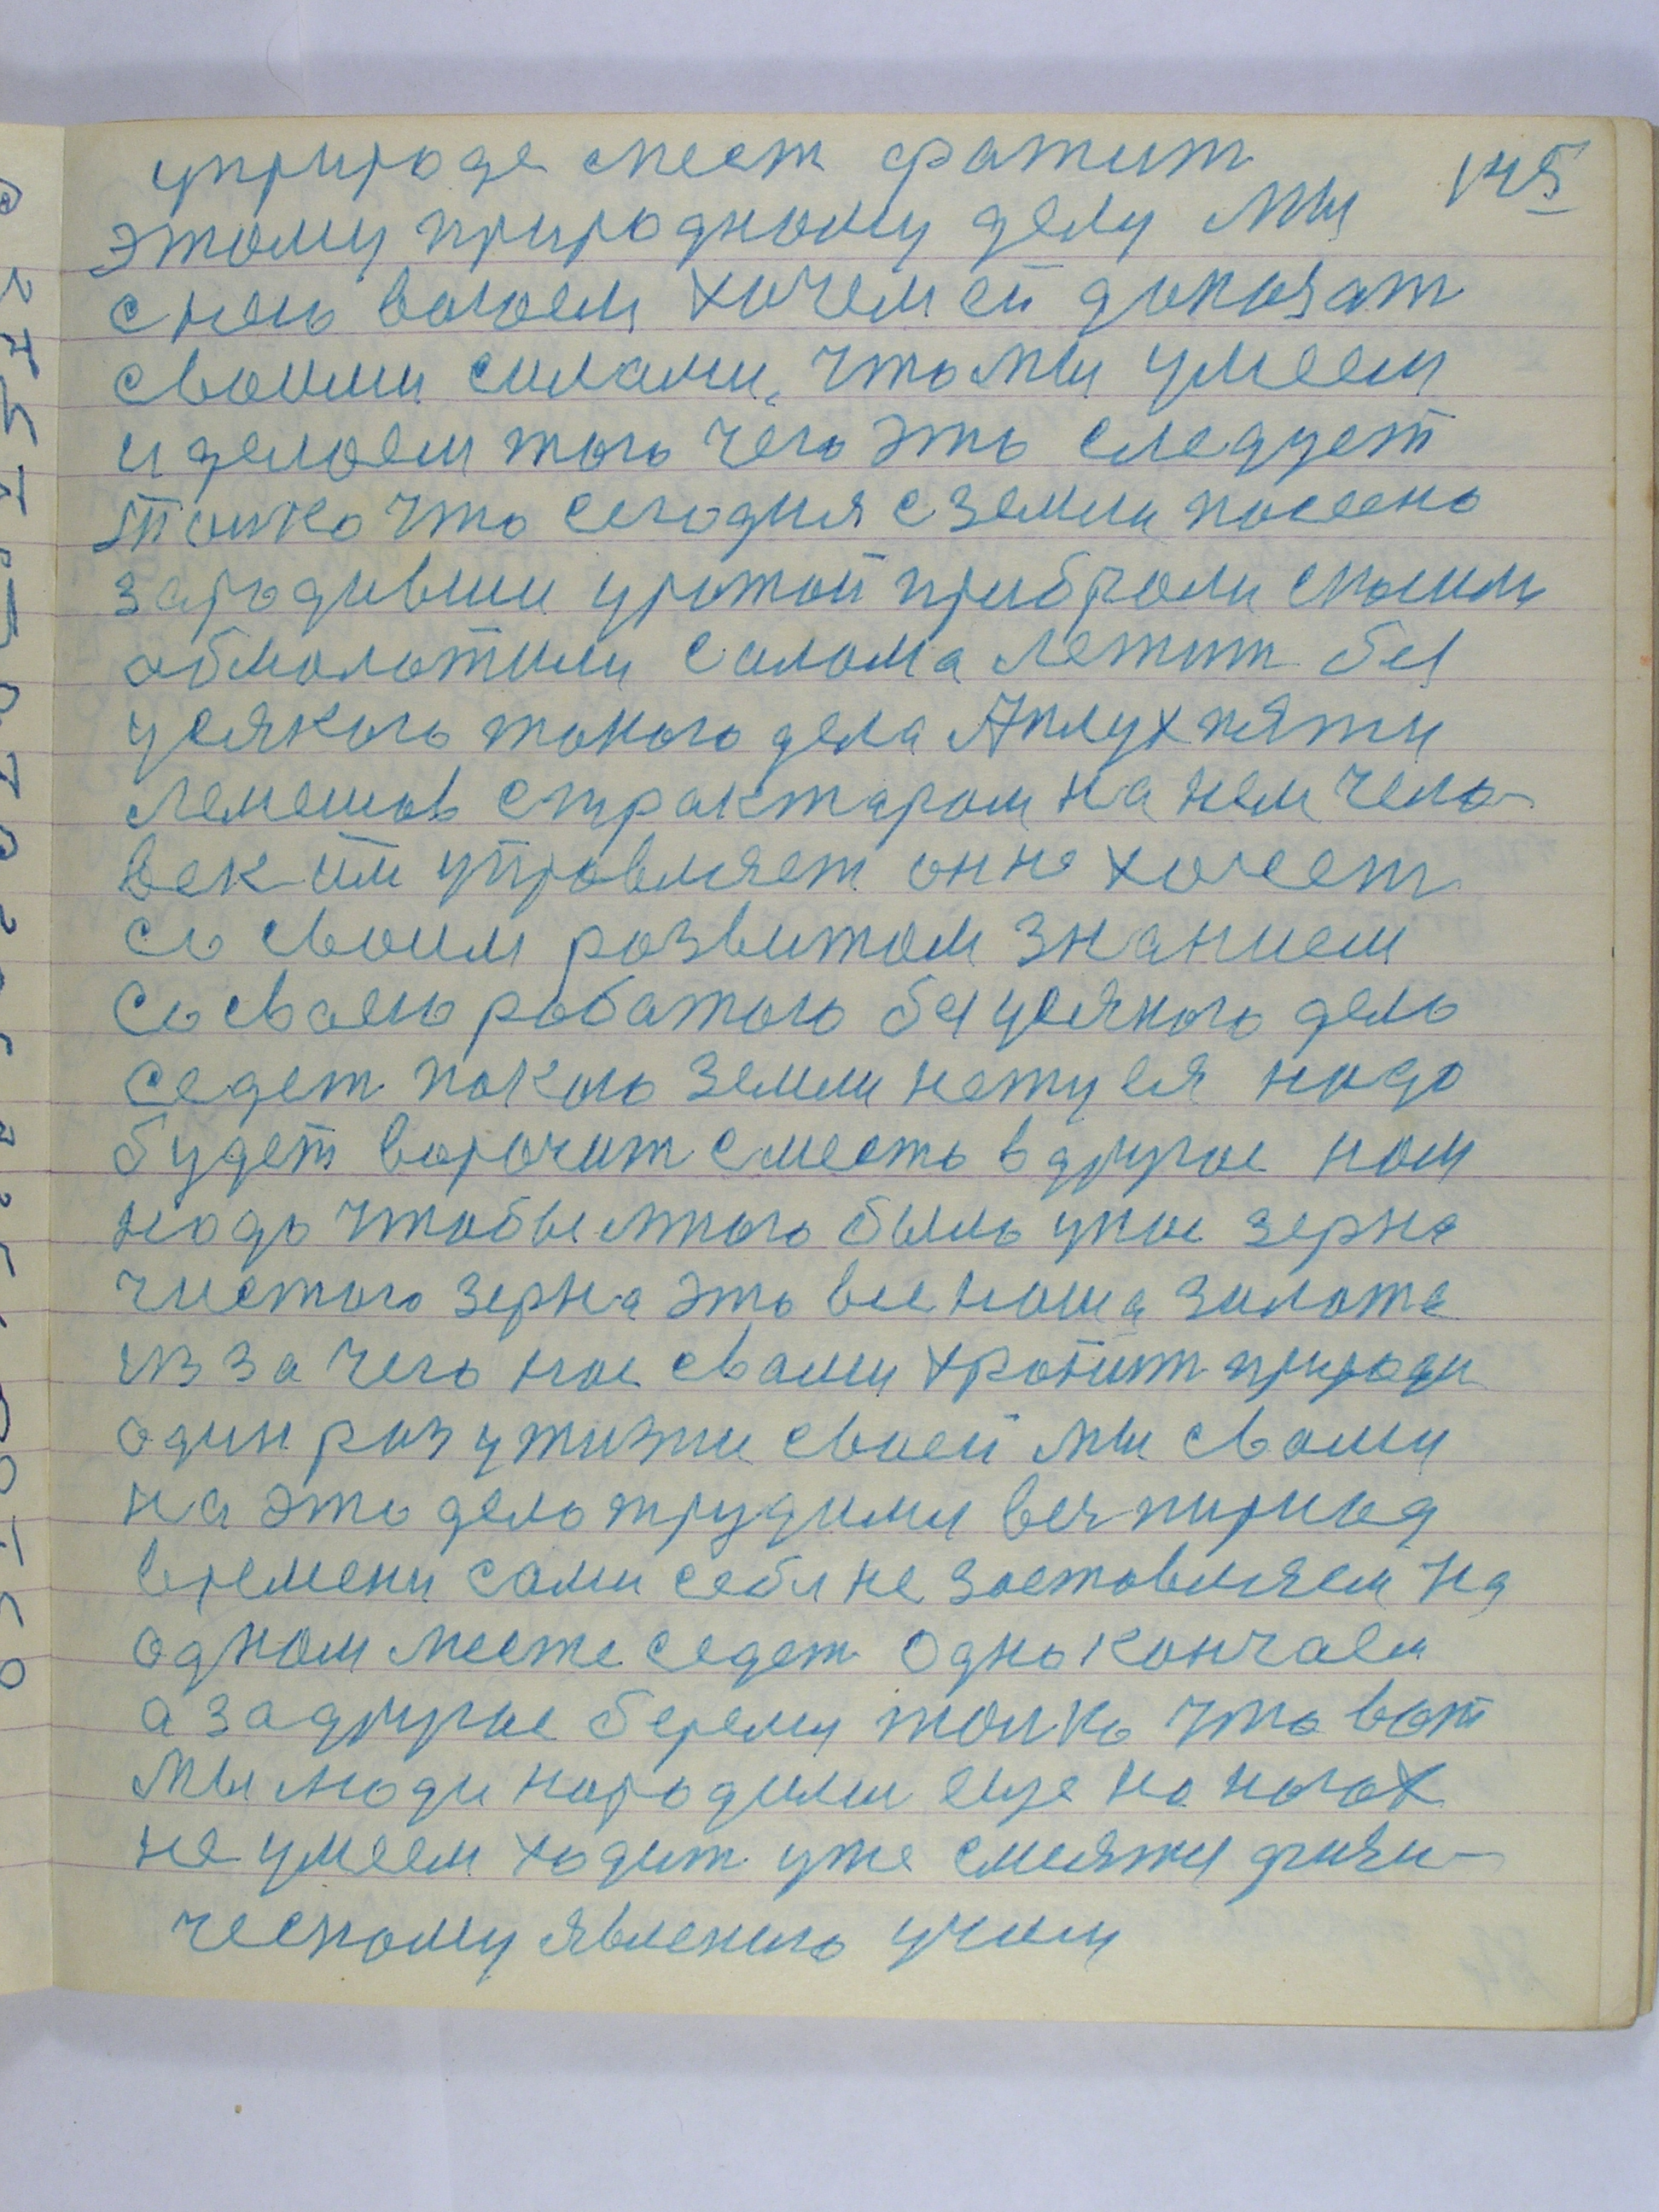 145
уприроде мест фатит
этому природному делу Мы
с нею воюем хочем ей доказат
своими силами, что мы умеем
и делоем того чего это следует
толко что сегодня с земли посеено
зародивши урожай прибрали скосили
обмолотили салома лежит без
усякого такого дела А плух пяти
лемешов с трактаром на нем чело-
век им управляет он не хочет
со своим розвитом знанием
со своею работаю без усякого дело
седет покого земли нету ея надо
будет ворочит с место в другое нам
надо чтобы много было у нас зерна
чистого зерна это все наша золота
из за чего нас свами хронит природа
один раз у жизни своей мы свами
на это дело трудими весь пириод
времени сами себя не заставляем на
одном месте седет одно кончаем
а за другое беремы толко что вот
мы люди народими еще на ногах
не умеем ходит уже смияжи физи-
ческому явлению учими